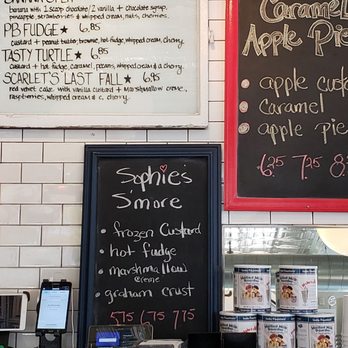 banana with 1 scoop chocolate/2 vanilla + chocolate syrup,
pineapple, strawberries & whipped cream, nuts, cherries
PB FUDGE ★ 6.85
custard + peanut butter, brownie, hot fudge, whipped cream, cherry
TASTY TURTLE ★ 6.85
custard + hot fudge, caramel, pecans, whipped cream & cherry
SCARLET'S LAST FALL ★ 6.95
red velvet cake with vanilla custard + marshmallow creme,
raspberries, whipped cream & cherry
Caramel
Apple Pie
apple cust
caramel
apple pie
6.25 7.25 8
Sophie's
S'more
• frozen custard
• hot fudge
• marshmallow
creme
• graham crust
5.75 6.75 7.75